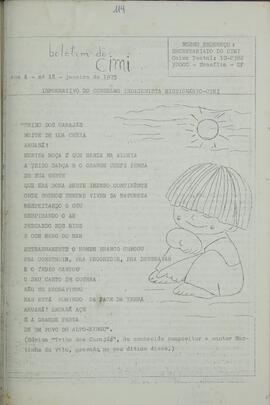 114
boletim do
CIMI
NOSSO ENDEREÇO:
SECRETARIADO DO CIMI
Caixa Postal:
70000 - Brasília - DF
ano 4 - nº 18 - janeiro de 1975
INFORMATIVO DO CONSELHO INDIGENISTA MISSIONÁRIO-CIMI
"TRIBO DOS CARAJÁS
NOITE DE LUA CHEIA
ARUANÃ!
MENINA MOÇA É QUE MANDA NA ALDEIA
A TRIBO DANÇA E O GRANDE CHEFE PENSA
EM SUA GENTE
QUE ERA DONA DESTE IMENSO CONTINENTE
ONDE SONHOU SEMPRE VIVER DA NATUREZA
RESPEITANDO O CÉU
RESPIRANDO O AR
PESCANDO NOS RIOS
E COM MEDO DO MAR
ESTRANHAMENTE O HOMEM BRANCO CHEGOU
PRA CONSTRUIR, PRA PROGREDIR, PRA DESMATAR
E O ÍNDIO CANTOU
O SEU CANTO DE GUERRA
NÃO SE ESCRAVIZOU
MAS ESTÁ SUMINDO DA FACE DA TERRA
ARUANÃ! ARUANÃ AÇU
É A GRANDE FESTA
DE UM POVO DO ALTO-XINGU".
(Música "Tribo dos Carajás", do conhecido compositor e cantor Mar-
tinho da Vila, gravada no seu último disco.)